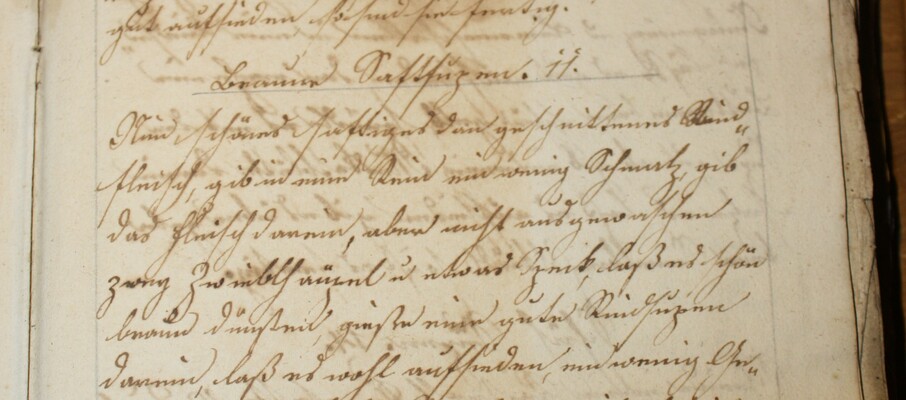 gut aufsieden, so sind sie fertig.
Braune Saftsupen. 11.
Nim schönes saftiges dün geschnittenes Rind-
fleisch, gib in eine Rein ein wenig Schmalz, gib
das Fleisch darein, aber nicht ausgewaschen
zwey Zwieblhäupel u etwas Speck, laß es schön
braun dünsten, gieße eine gute Rindsupen
darein, laß es wohl aufsieden, ein wenig Ge-